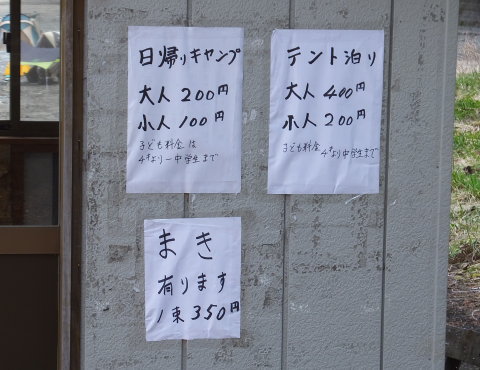 日帰りキャンプ
大人 200円
小人 100円
子ども料金は
4才より一中学生まで
テント泊り
大人 400円
小人 200円
子ども料金 4才より中学生まで
まき
有ります
1束 350円